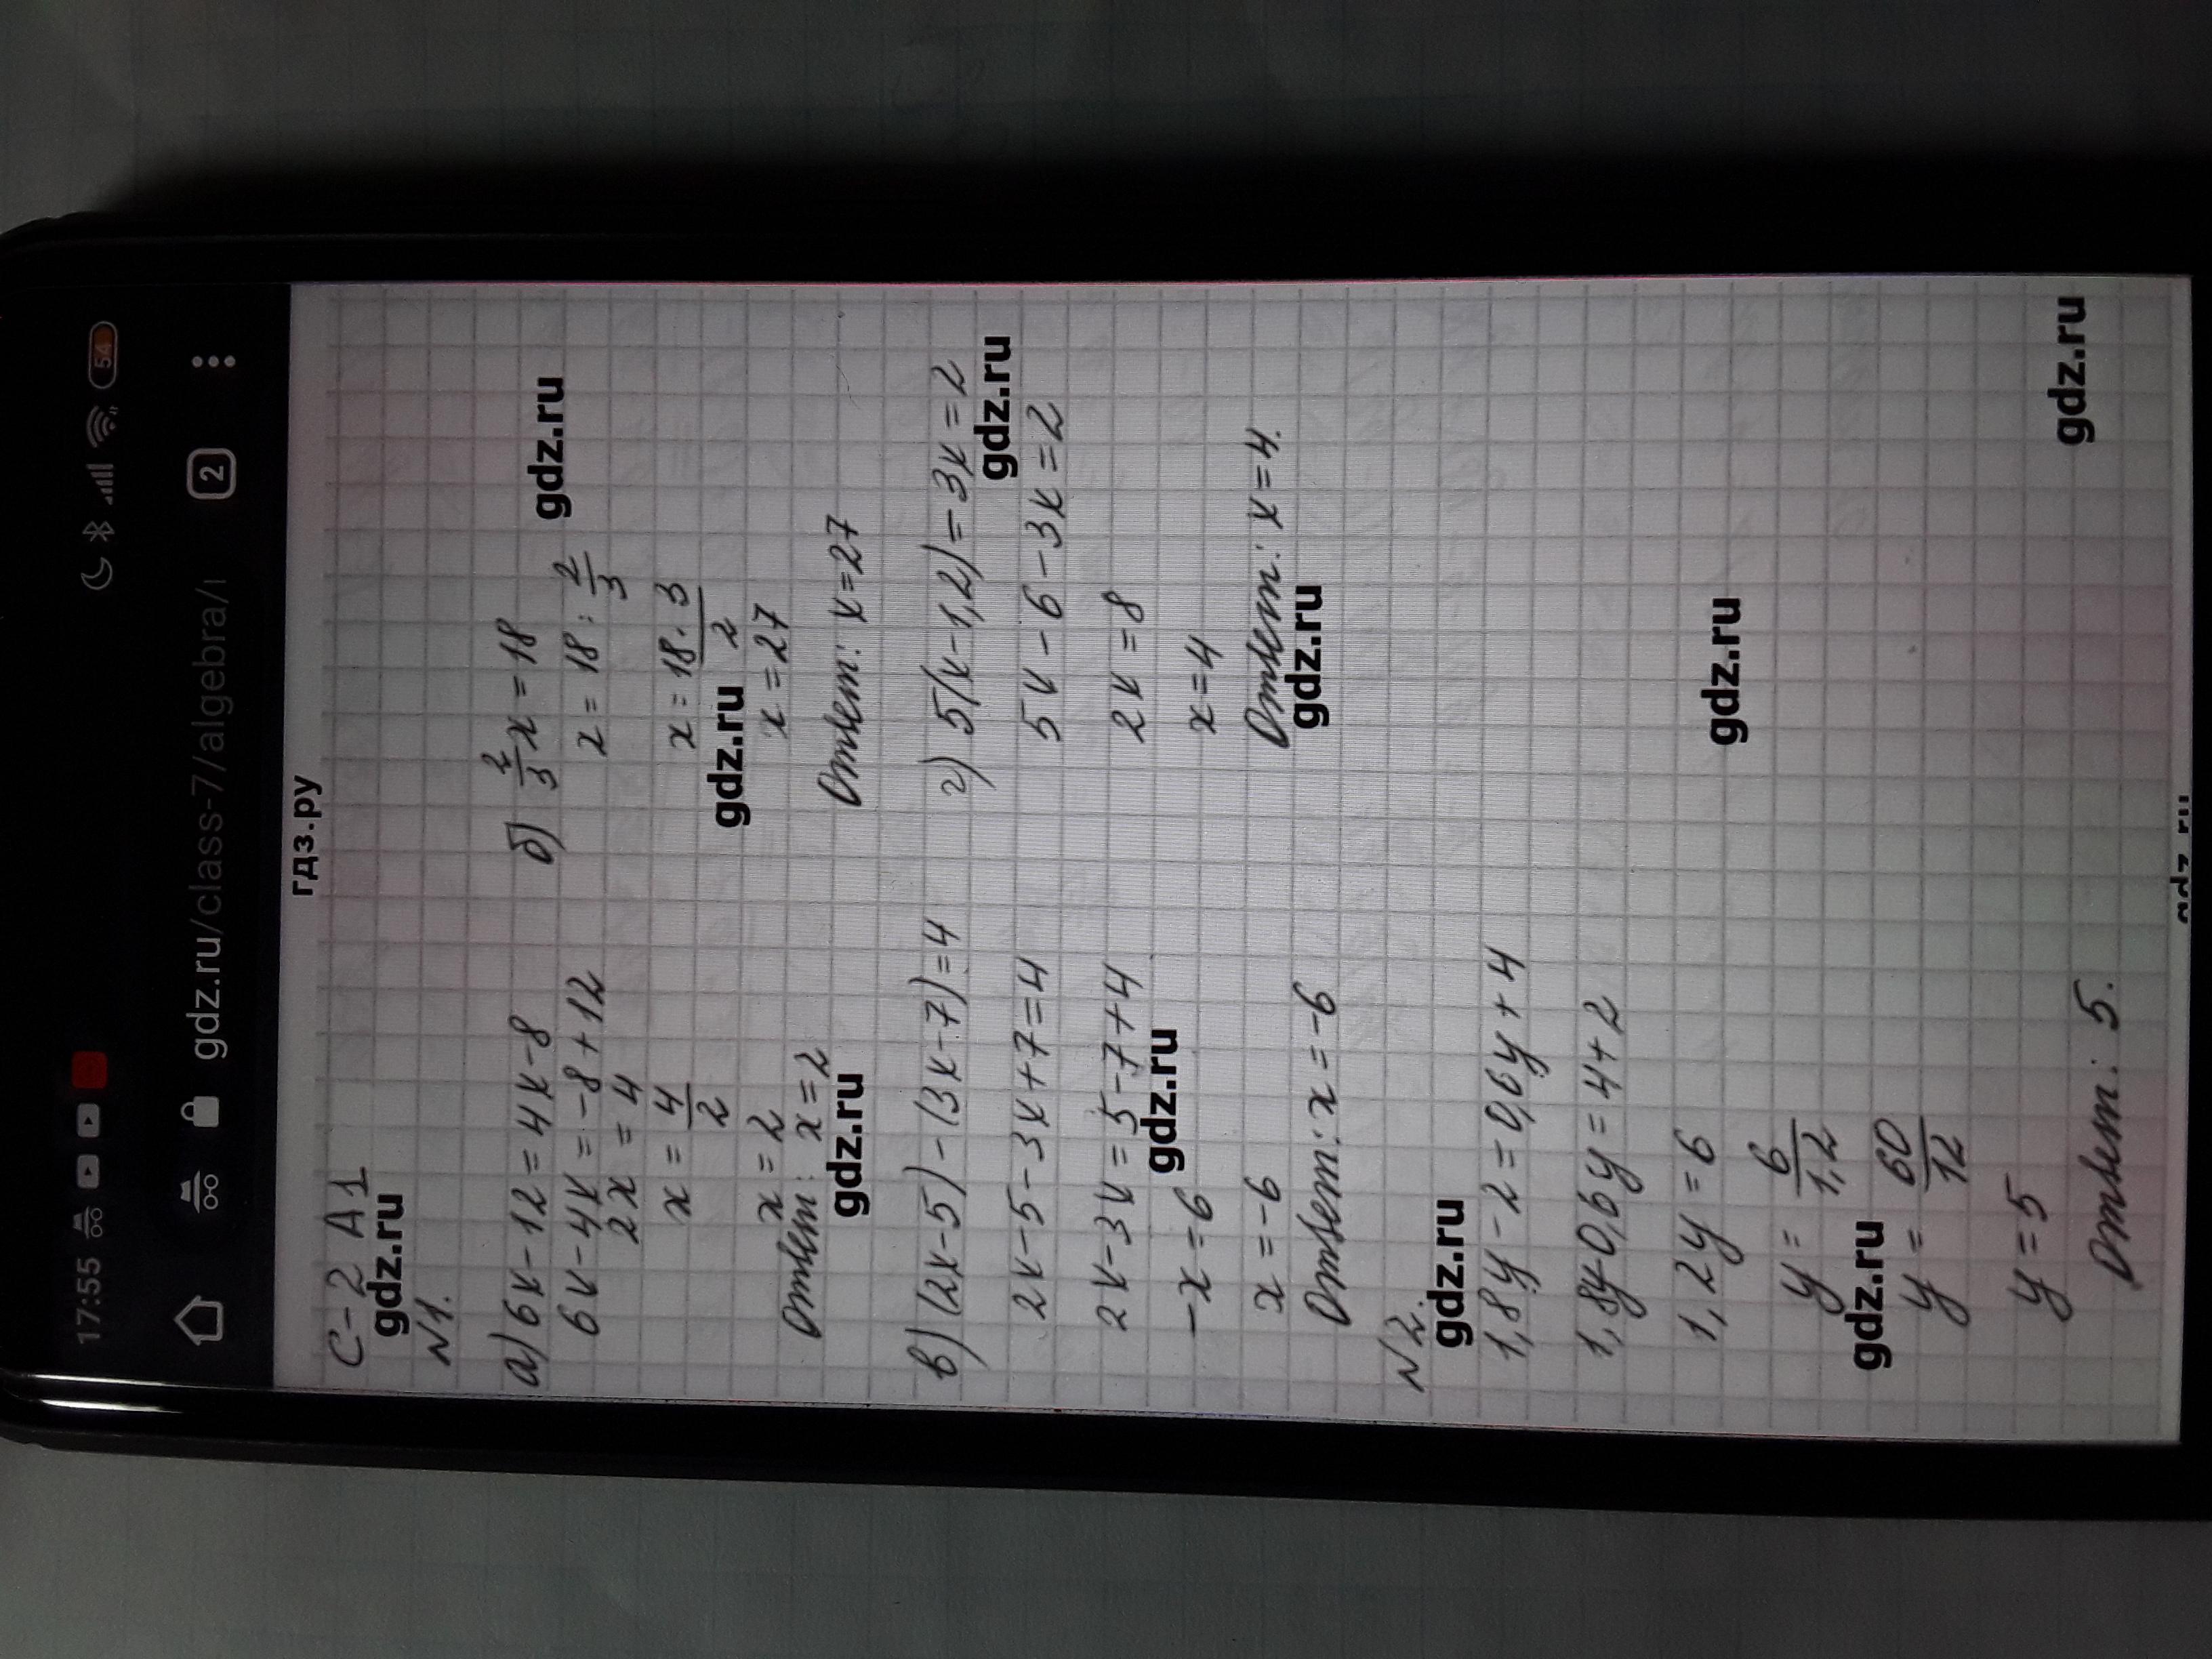 17:55 54
gdz.ru/class-7/algebra/ 2
гдз.ру
С-2 А1
gdz.ru
№1.
а) 6x-12=4x-8
6x-4x=-8+12
2x=4
x=4/2
x=2
Ответ: x=2
gdz.ru
б) 2/3x=18
gdz.ru
x=18:2/3
x=18·3/2
gdz.ru
x=27
Ответ: x=27
в) (2x-5)-(3x-7)=4
2x-5-3x+7=4
2x-3x=5-7+4
gdz.ru
-x=6
x=-6
Ответ: x=-6
г) 5(x-1,2)-3x=2
gdz.ru
5x-6-3x=2
2x=8
x=4
Ответ: x=4.
gdz.ru
№2.
gdz.ru
1,8y-2=0,6y+4
1,8y-0,6y=4+2
1,2y=6
gdz.ru
y=6/1,2
gdz.ru
y=60/12
y=5
Ответ: 5.
gdz.ru
gdz.ru